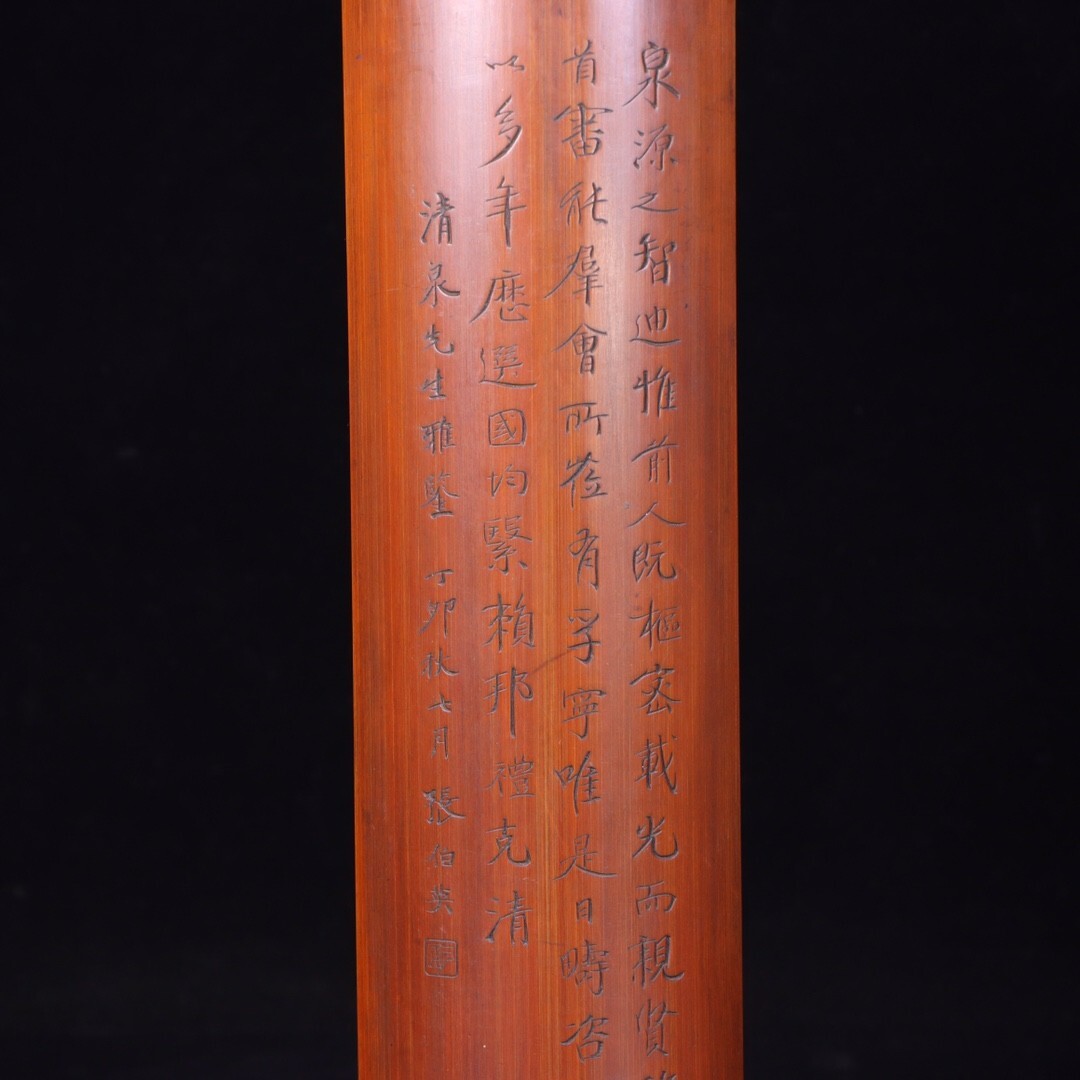 泉源之智迪惟前人既樞密載光而親賢
首審能羣會所蒞有孚寧唯是日疇咨
以多年歷選國均繄賴邦禮克清
清泉先生雅鑒 丁卯秋七月 張伯英